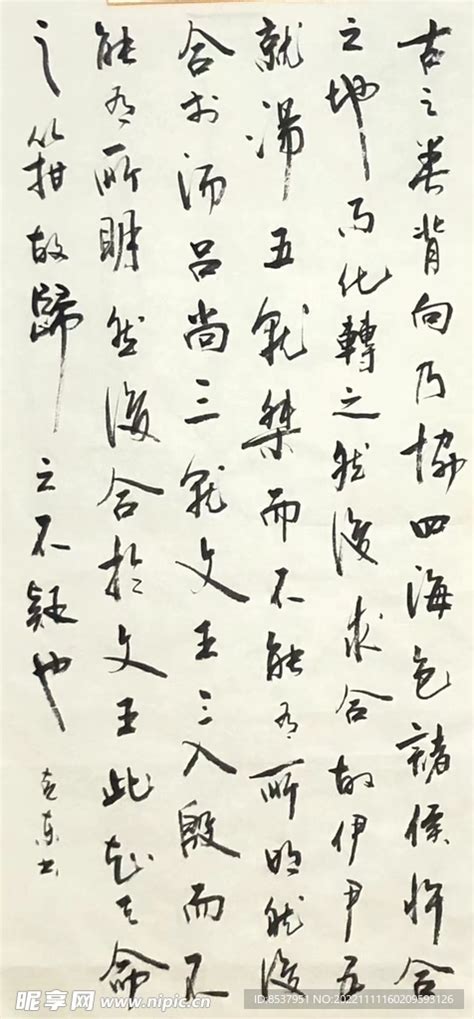 古之善背向乃協四海包諸侯忤合
之地而化轉之然後求合故伊尹五
就湯五就桀而不能有所明然後
合於湯吕尚三就文王三入殷而不
能有所明然後合於文王此知天命
之箝故歸之不疑也
东书
昵享网 www.nipic.cn
ID:8537951 NO:20221111160209593126